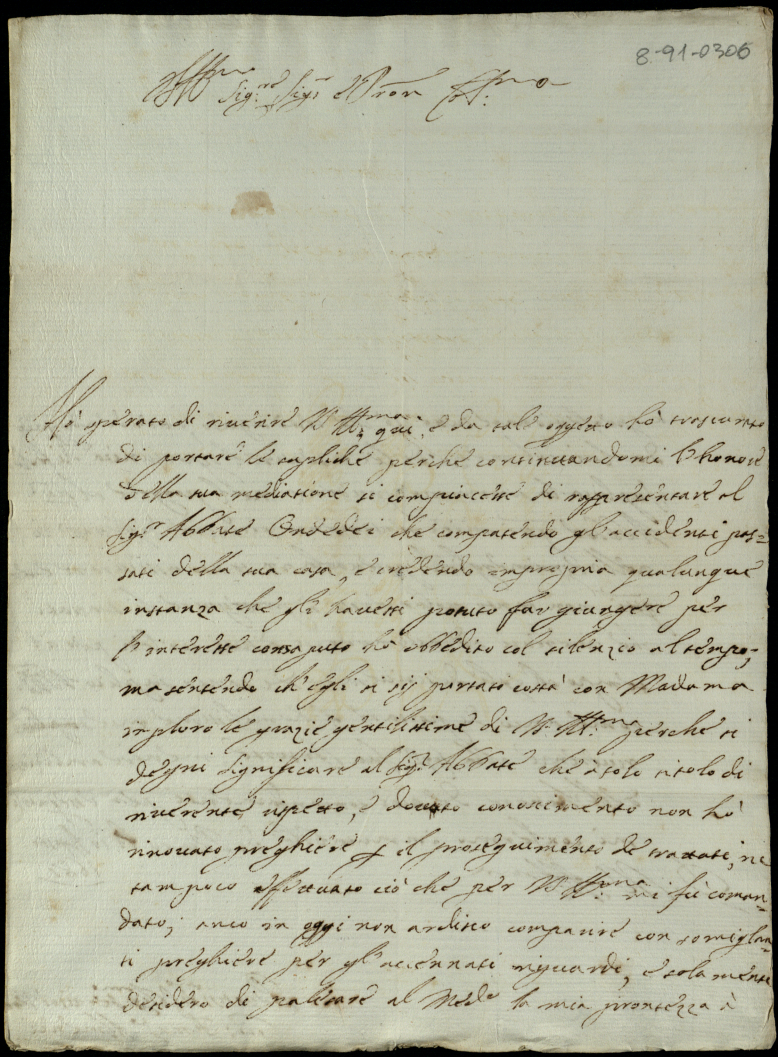 8-91-0306
Ill.mo Sig.re Sig.r e Pron Col.mo
Hò sperato di riverire V. Ill.ma qui, e da tale oggetto hò trascurato
di portare le supliche perche continuandomi l'honore
della sua mediatione si compiacesse di rappresentare al
Sig.r Abbate Ondedei che compatendo gl'accidenti pas=
sati della sua casa, e credendo impropria qualunque
instanza che gli havessi potuto far giungere per
l'interesse consaputo hò obbedito col silenzio al tempo;
ma sentendo ch'egli si sij portato costà con Madama
imploro le grazie gentilissime di V. Ill.ma perche si
degni significare al Sig.r Abbate che à solo titolo di
riverente rispetto, e dovuto conoscimento non hò
rinovato preghiere p il proseguimento de trattati, ne
tampoco effettuato ciò che per V. Ill.ma mi fù coman=
dato; anco in oggi non ardisco comparire con somiglian=
ti preghiere per gl'accennati riguardi, e solamente
desidero di palesare al Med.o la mia prontezza à